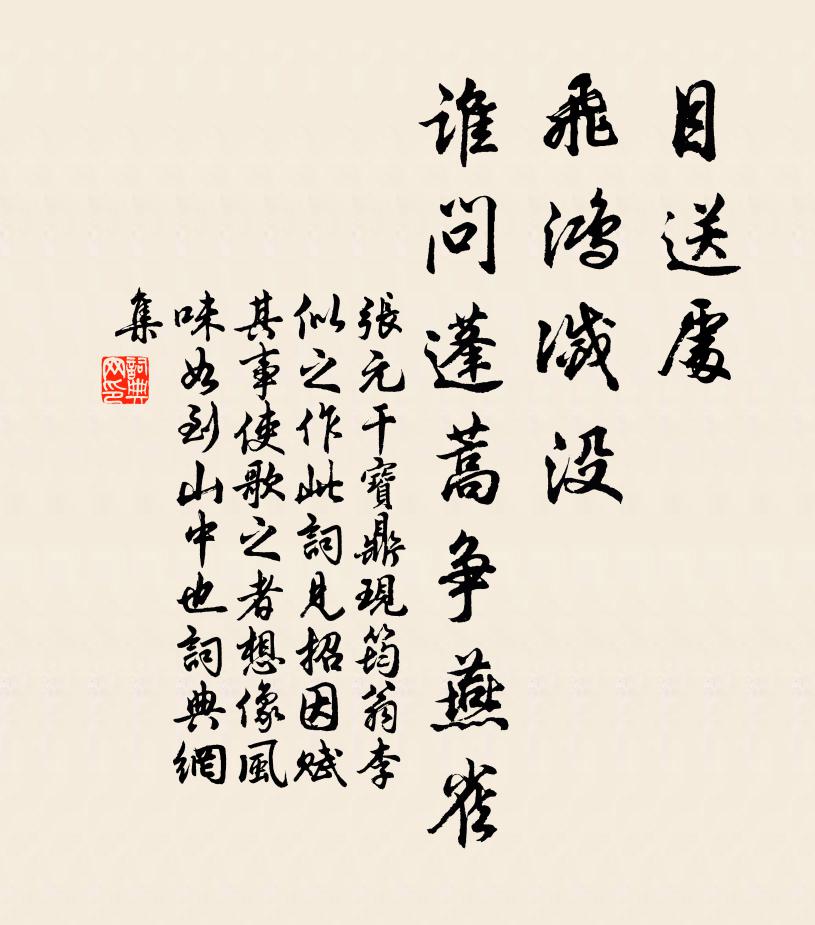 目送處
飛鴻滅没
誰問蓬蒿争燕雀
張元干寶鼎現筠翁李
似之作此詞見招因賦
其事使歌之者想像風
味如到山中也詞典網
集
詞典
网印